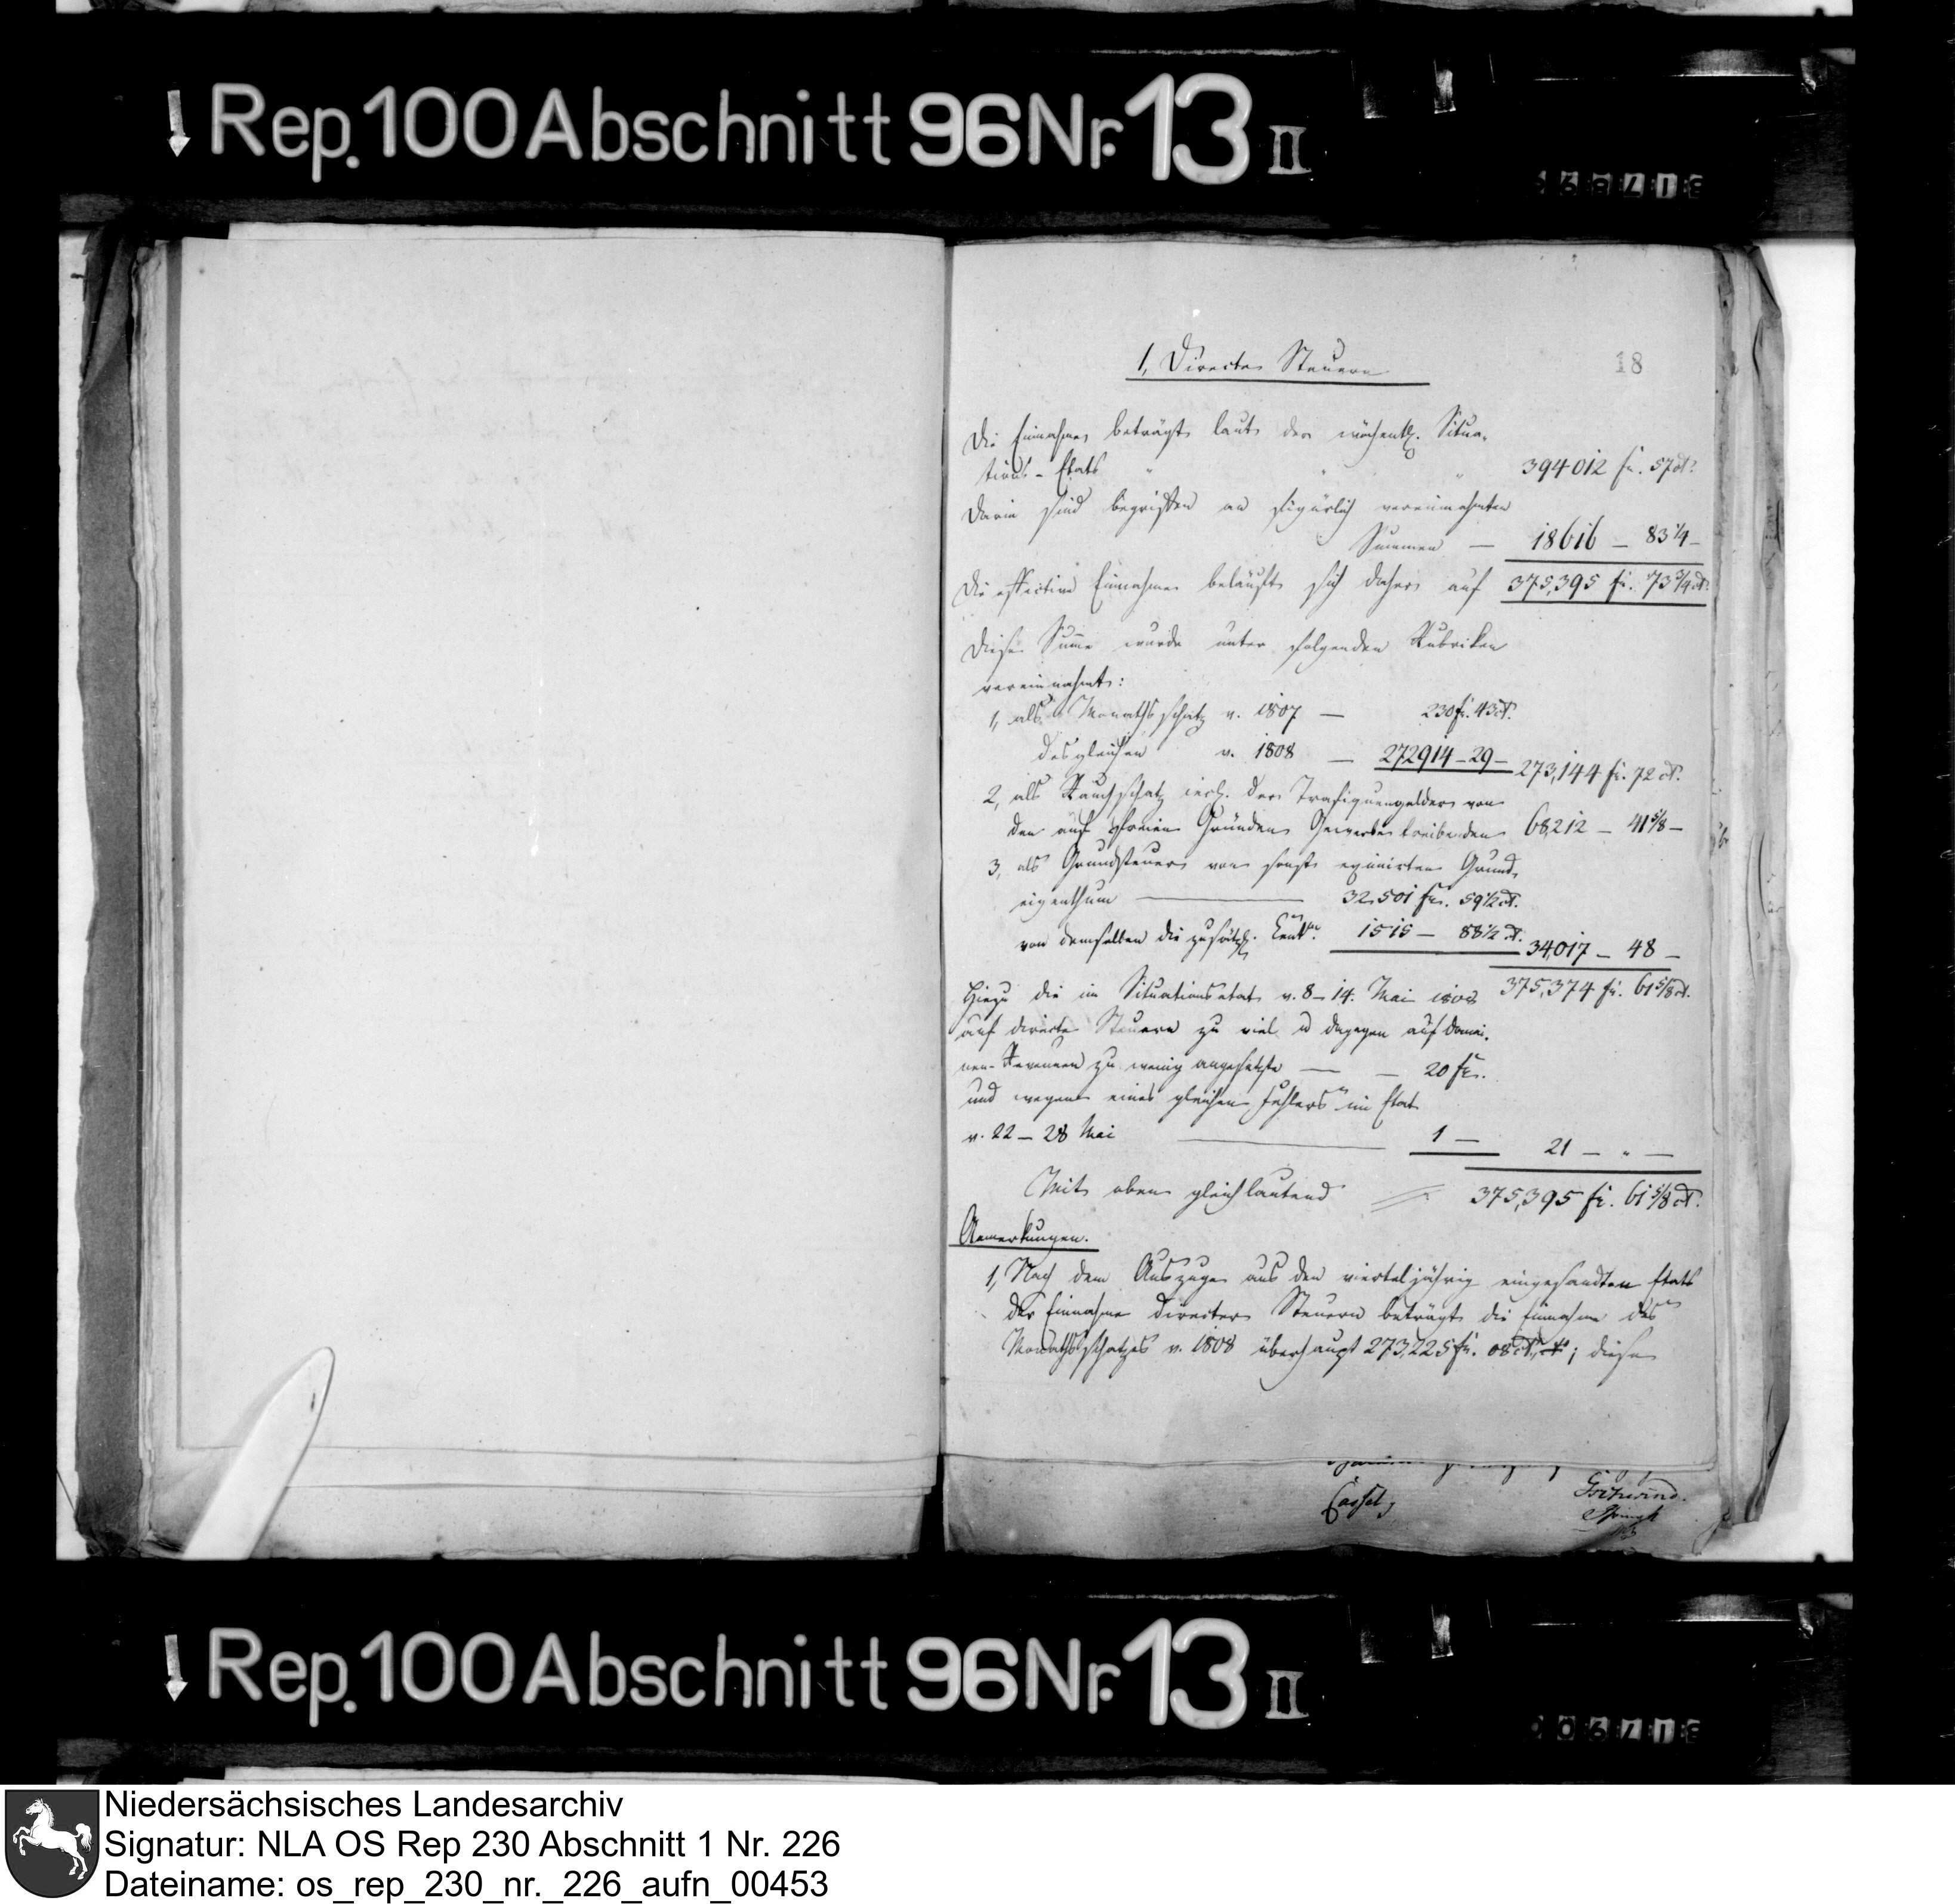 Rep. 100 Abschnitt 96 Nr. 13 II
18
1, Directe Steuern
Die Einnahme beträgt laut der wöchentl. Situa-
tions-Etats " " " 394012 fr. 57 ct.
Darin sind begriffen an figürlich vereinnahmten
Summen — 18616 — 83 1/4 —
Die effective Einnahme beläuft sich daher auf 375,395 fr. 73 3/4 ct.
Diese Summe wurde unter folgenden Rubriken
vereinnahmt:
1, als Monathsschatz v. 1807 — 230 fr. 43 ct.
desgleichen v. 1808 — 272914 — 29 — 273,144 fr. 72 ct.
2, als Rauchschatz incl. der Trafiquengelder von
den auf freien Gründen Gewerbe treibenden 68,212 — 41 5/8 —
3, als Grundsteuer von sonst eximirten Grund-
eigenthum — 32,501 fr. 59 1/2 ct.
von demselben die zusätzl. Cent. 1515 — 88 1/2 ct. 34,017 — 48 —
375,374 fr. 61 5/8 ct.
Hiezu die im Situationsetat v. 8–14. Mai 1808
auf directe Steuern zu viel u dagegen auf Domai-
nen-Revenuen zu wenig angesetzte — — 20 fr.
und wegen eines gleichen Fehlers im Etat
v. 22 – 28 Mai — 1 — 21 — " —
Mit oben gleichlautend 375,395 fr. 61 5/8 ct.
Anmerkungen.
1, Nach dem Auszuge aus den vierteljährig eingesandten Etats
der Einnahme directer Steuern beträgt die Einnahme des
Monathsschatzes v. 1808 überhaupt 273,225 fr. 08 ct.; diese
Cassel,
Rep. 100 Abschnitt 96 Nr. 13 II
Niedersächsisches Landesarchiv
Signatur: NLA OS Rep 230 Abschnitt 1 Nr. 226
Dateiname: os_rep_230_nr._226_aufn_00453